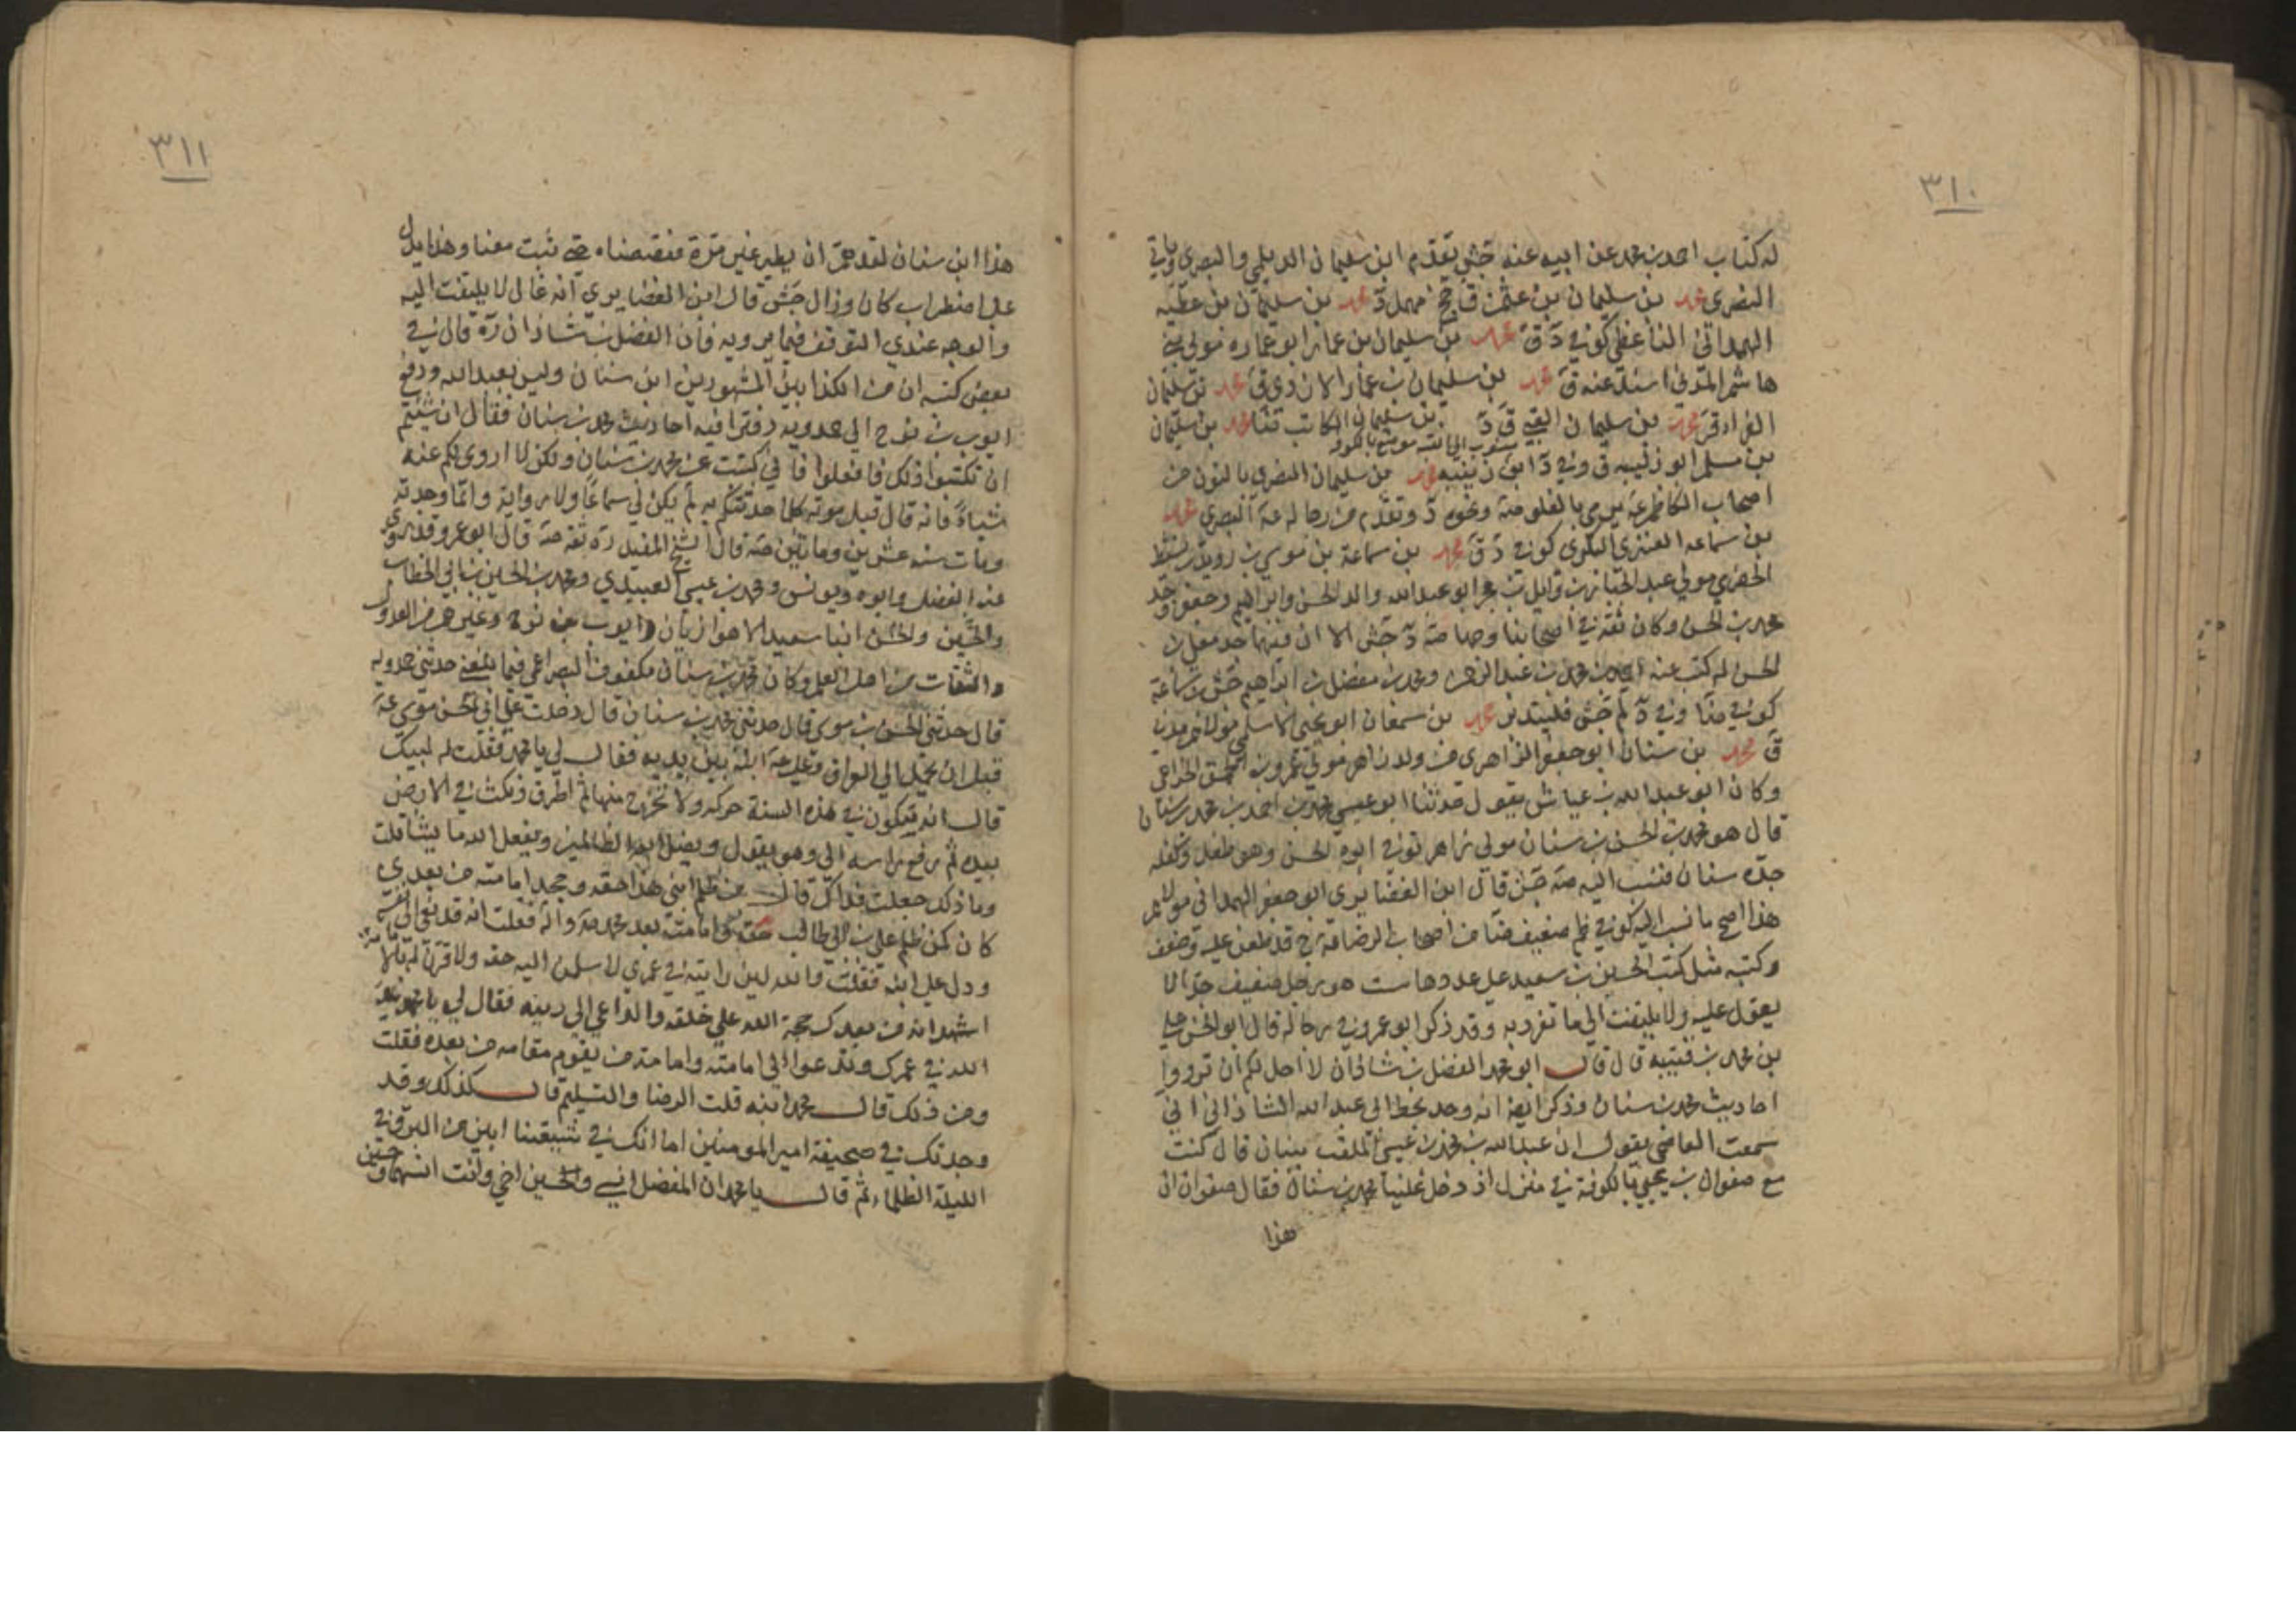 ٣١٠
له كتاب احمد بن محمد عن ابيه عنه جش تقدم ابن سليمان الديلمي والبصري وياتي
النصري محمد بن سليمان بن عثمن ق جخ مهمل د محمد بن سليمان بن عطيه
الهمداني الناعطي كوفي د ق محمد بن سليمان بن عمار ابو عماره مولى بني
هاشم المدني اسند عنه ق محمد بن سليمان بن عمار الازدي ق محمد بن سليمان
الفراء ق محمد بن سليمان القبي ق د بن سليمان الكاتب محمد بن سليمان
منسوب الى قبه موضع بالكوفه
بن مسلم ابو زنيبه ق وفي د ابن زنيبه محمد بن سليمان النصري بالنون من
اصحاب الكاظم يرمي بالغلو ضه ونحوه د وتقدم من رجاله البصري محمد
بن سماعه العنزي البكري كوفي د ق محمد بن سماعة بن موسى بن رويد بن نشيط
الحضرمي مولى عبد الجبار بن وايل بن حجر ابو عبد الله والد الحسن وابراهيم وجعفر وجد
محمد بن الحسن وكان ثقه في اصحابنا وجها صه د جش الا ان فيهما جد معلى بن
الحسن له كتب عنه احمد بن محمد بن عبد الرحمن ومحمد بن مفضل بن ابراهيم جش
كوفي وفي د لم جش فليتدبر محمد بن سمعان ابو يحيى الاسلمي مولاهم مدني
ق محمد بن سنان ابو جعفر الزاهري من ولد زاهر مولى عمرو بن الحمق الخزاعي
وكان ابو عبد الله بن عياش يقول حدثنا ابو عيسى محمد بن احمد بن محمد بن سنان
قال هو محمد بن الحسن بن سنان مولى زاهر توفي ابوه الحسن وهو طفل وكفله
جده سنان فنسب اليه صه جش قال ابن الغضايري ابو جعفر الهمداني مولاهم
هذا اصح ما نسب اليه كوفي ضعيف من اصحاب الرضا قد طعن عليه وضعف
وكتبه مثل كتب الحسين بن سعيد على عددها ست هو رجل ضعيف جدا لا
يعول عليه ولا يلتفت الى ما تفرد به وقد ذكر ابو عمرو في رجاله قال ابو الحسن علي
بن محمد بن قتيبه قال قال ابو محمد الفضل بن شاذان لا احل لكم ان ترووا
احاديث محمد بن سنان وذكر ايضا انه وجد بخط ابي عبد الله الشاذاني اني
سمعت العاصمي يقول ان عبد الله بن محمد بن عيسى الملقب ببنان قال كنت
مع صفوان بن يحيى بالكوفة في منزل اذ دخل علينا محمد بن سنان فقال صفوان ان
هذا
٣١١
هذا ابن سنان لقد هم ان يطير غير مرة فقصصناه حتى ثبت معنا وهذا يدل
على اضطراب كان وزال جش قال ابن الغضايري انه غالى لا يلتفت اليه
والوجه عندي التوقف فيما يرويه فان الفضل بن شاذان ره قال في
بعض كتبه ان من الكذابين المشهورين ابن سنان وليس بعبد الله ودفع
ايوب بن نوح الى حمدويه دفترا فيه احاديث محمد بن سنان فقال ان شئتم
ان تكتبوا ذلك فافعلوا فاني كتبت عن محمد بن سنان ولكن لا اروي لكم عنه
شيئا فانه قال قبل موته كلما حدثتكم به لم يكن لي سماعا ولا رواية وانما وجدته
ومات سنه عشرين ومائتين صه قال الشيخ المفيد ره ثقه صه قال ابو عمرو قد روى
عنه الفضل وابوه ويونس ومحمد بن عيسى العبيدي ومحمد بن الحسين بن ابي الخطاب
والحسين والحسن ابنا سعيد الاهوازيان وايوب بن نوح وغيرهم من العدول
والثقات من اهل العلم وكان محمد بن سنان مكفوف البصر اعمى فيما بلغني حدثني حمدويه
قال حدثني الحسن بن موسى قال حدثني محمد بن سنان قال دخلت على ابي الحسن موسى
قبل ان يحمل الى العراق وعلي ابنه بين يديه فقال لي يا محمد فقلت له لبيك
قال انه سيكون في هذه السنة حركه ولا تخرج منها ثم اطرق ونكث في الارض
بيده ثم رفع راسه الي وهو يقول ويضل الله الظالمين ويفعل الله ما يشا قلت
وما ذلك جعلت فداك قال من ظلم ابني هذا حقه وجحد امامته من بعدي
كان كمن ظلم علي بن ابي طالب حقه وامامته بعد محمد ص واله فقلت انه قد نعى الى نفسه
ودل على ابنه فقلت والله لين رايته في عمري لاسلمن اليه حقه ولاقرن له بالامامة
اشهد انه من بعدك حجة الله على خلقه والداعي الى دينه فقال لي يا محمد يمد
الله في عمرك وتدعوا الى امامته وامامة من يقوم مقامه من بعده فقلت
ومن ذلك قال محمد ابنه قلت الرضا والتسليم قال كذلك وقد
وجدتك في صحيفة امير المومنين اما انك في شيعتنا ابين من البرق في
الليلة الظلماء ثم قال يا محمد ان المفضل انسي